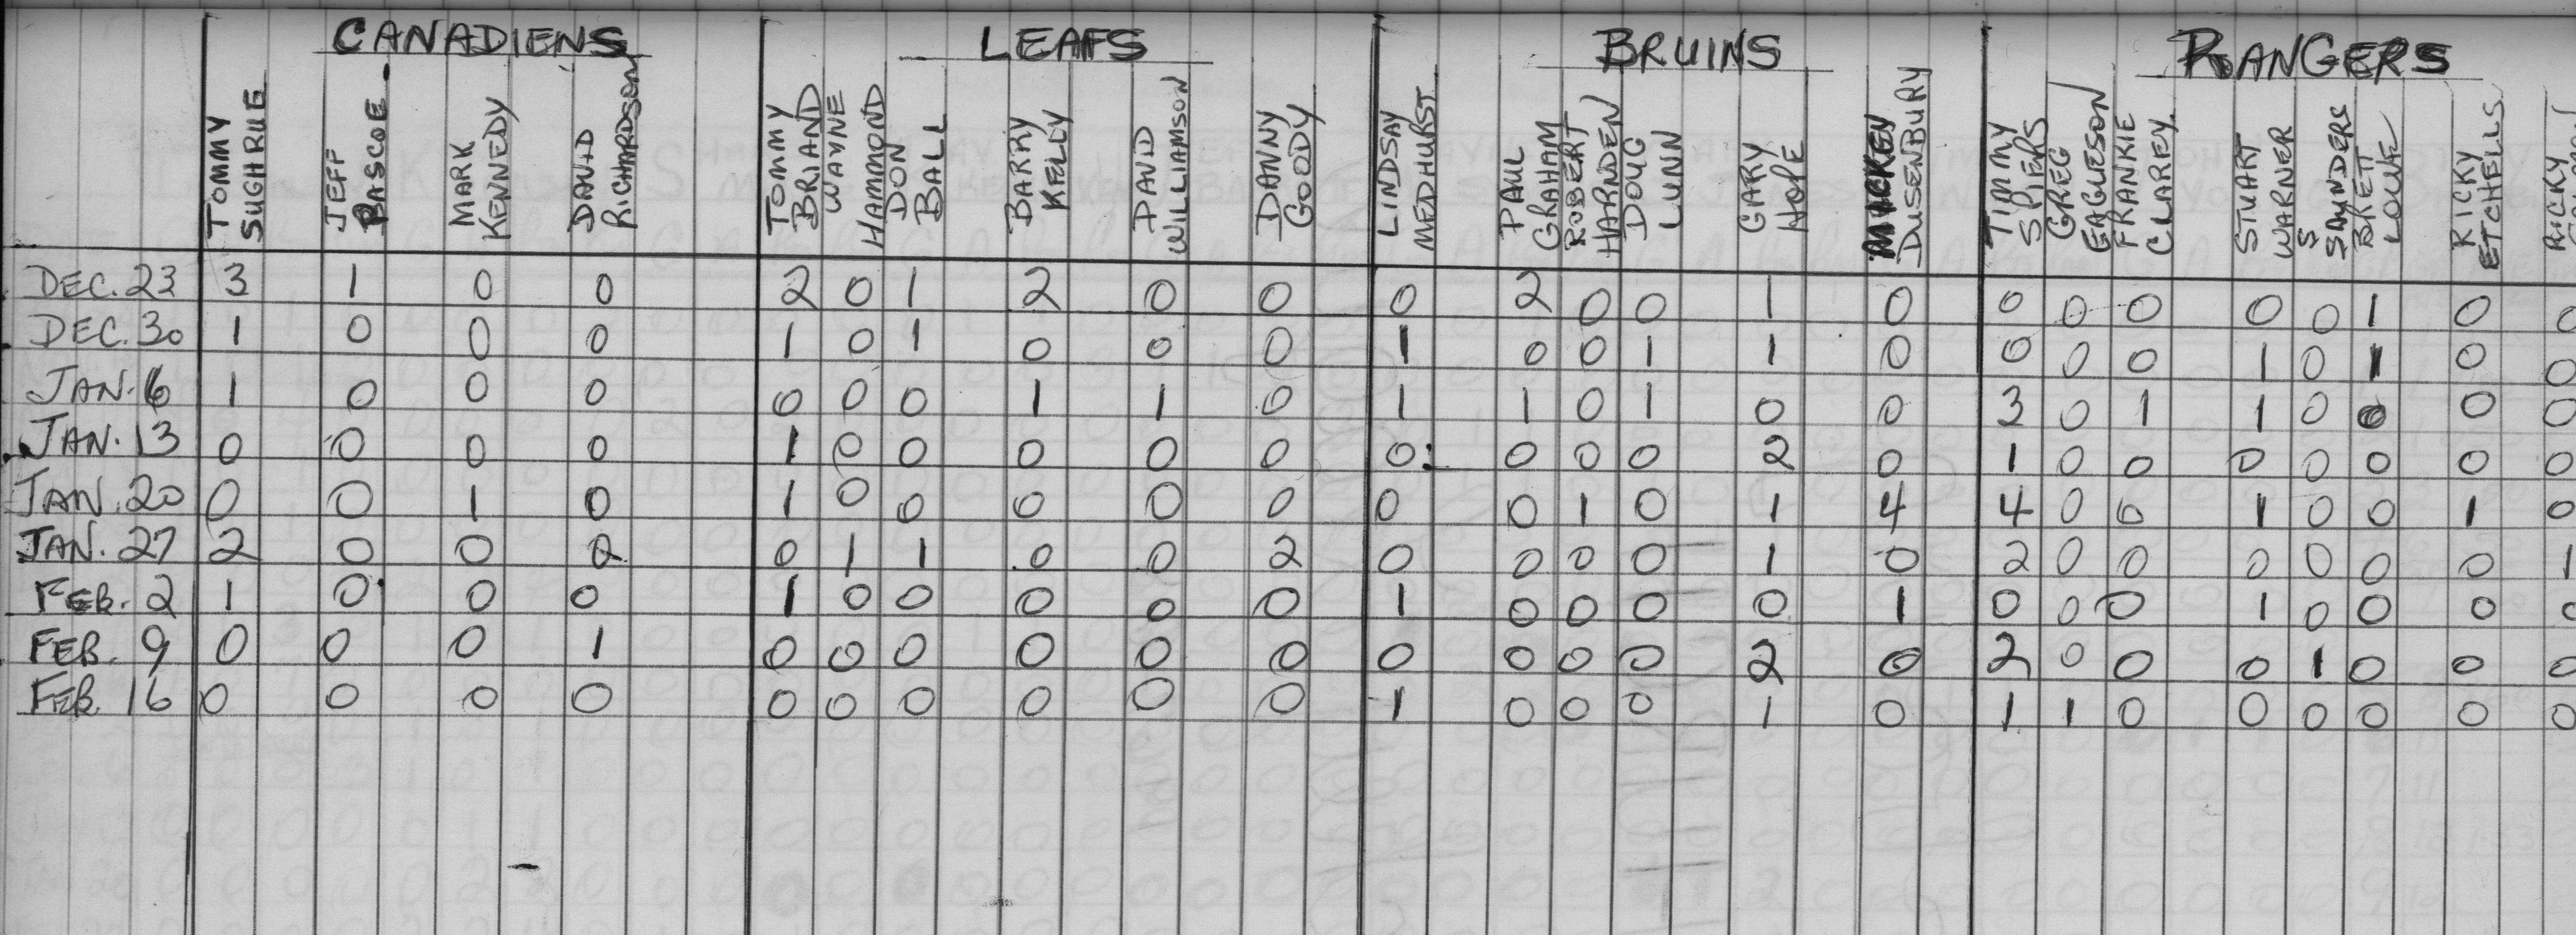 CANADIENS LEAFS BRUINS RANGERS
TOMMY SUGHRUE JEFF PASCOE MARK KENNEDY DAVID RICHARDSON TOMMY BRIAND WAYNE HAMMOND DON BALL BARRY KELLY DAVID WILLIAMSON DANNY GOODY LINDSAY MEDHURST PAUL GRAHAM ROBERT HARDEN DOUG LUNN GARY HOPE DUSENBURY TIMMY SPIERS GREG EAGLESON FRANKIE CLAREY STUART WARNER S SAUNDERS BRETT LOWE RICKY ETCHELLS RICKY
DEC. 23 3 1 0 0 2 0 1 2 0 0 0 2 0 0 1 0 0 0 0 0 0 1 0 0
DEC. 30 1 0 0 0 1 0 1 0 0 0 1 0 0 1 1 0 0 0 0 1 0 1 0 0
JAN. 6 1 0 0 0 0 0 0 1 1 0 1 1 0 1 0 0 3 0 1 1 0 0 0 0
JAN. 13 0 0 0 0 1 0 0 0 0 0 0 0 0 0 2 0 1 0 0 0 0 0 0 0
JAN. 20 0 0 1 0 1 0 0 0 0 0 0 0 1 0 1 4 4 0 0 1 0 0 1 0
JAN. 27 2 0 0 2 0 1 1 0 0 2 0 0 0 0 1 0 2 0 0 0 0 0 0 1
FEB. 2 1 0 0 0 1 0 0 0 0 0 1 0 0 0 0 1 0 0 0 1 0 0 0 0
FEB. 9 0 0 0 1 0 0 0 0 0 0 0 0 0 0 2 0 2 0 0 0 1 0 0 0
FEB. 16 0 0 0 0 0 0 0 0 0 0 1 0 0 0 1 0 1 1 0 0 0 0 0 0